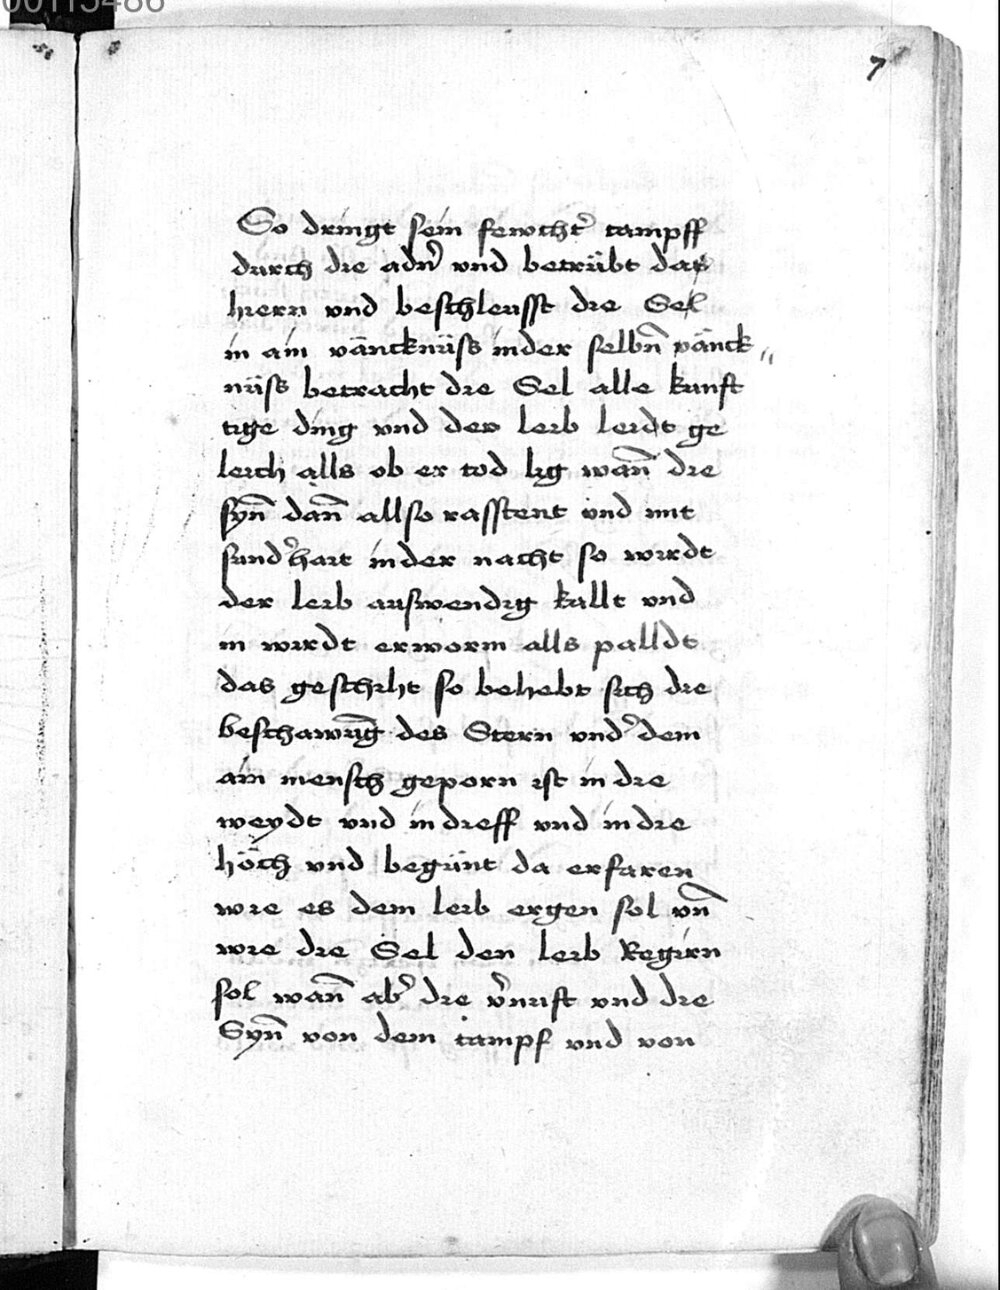 00115486
7
So dringt sein fewcht͛ tampff
durch die adn͛ vnd betrübt das
hiern vnd beschleusst die Sel
in ain vänncknüss in der selbn̄ vänck„
nüss betracht die Sel alle kunft
tige ding vnd der leib leidt ge
leich alls ob er tod lig wan̄ die
syn̄ dan̄ allso rasstent vnd mit
sund͛hait in der nacht so wirdt
der leib auswendig kallt vnd
in wirdt erworm alls palldt
das geschiht so behebt sich die
beschawūg des Stern vnd͛ dem
ain mensch geporn ist in die
weydt vnd in dieff vnd in die
höch vnd begünt da erfaren
wie es dem leib ergen sol vn̄
wie die Sel den leib Regirn
sol wan̄ ab͛ die v͛nuft vnd die
Syn̄ von dem tampf vnd von